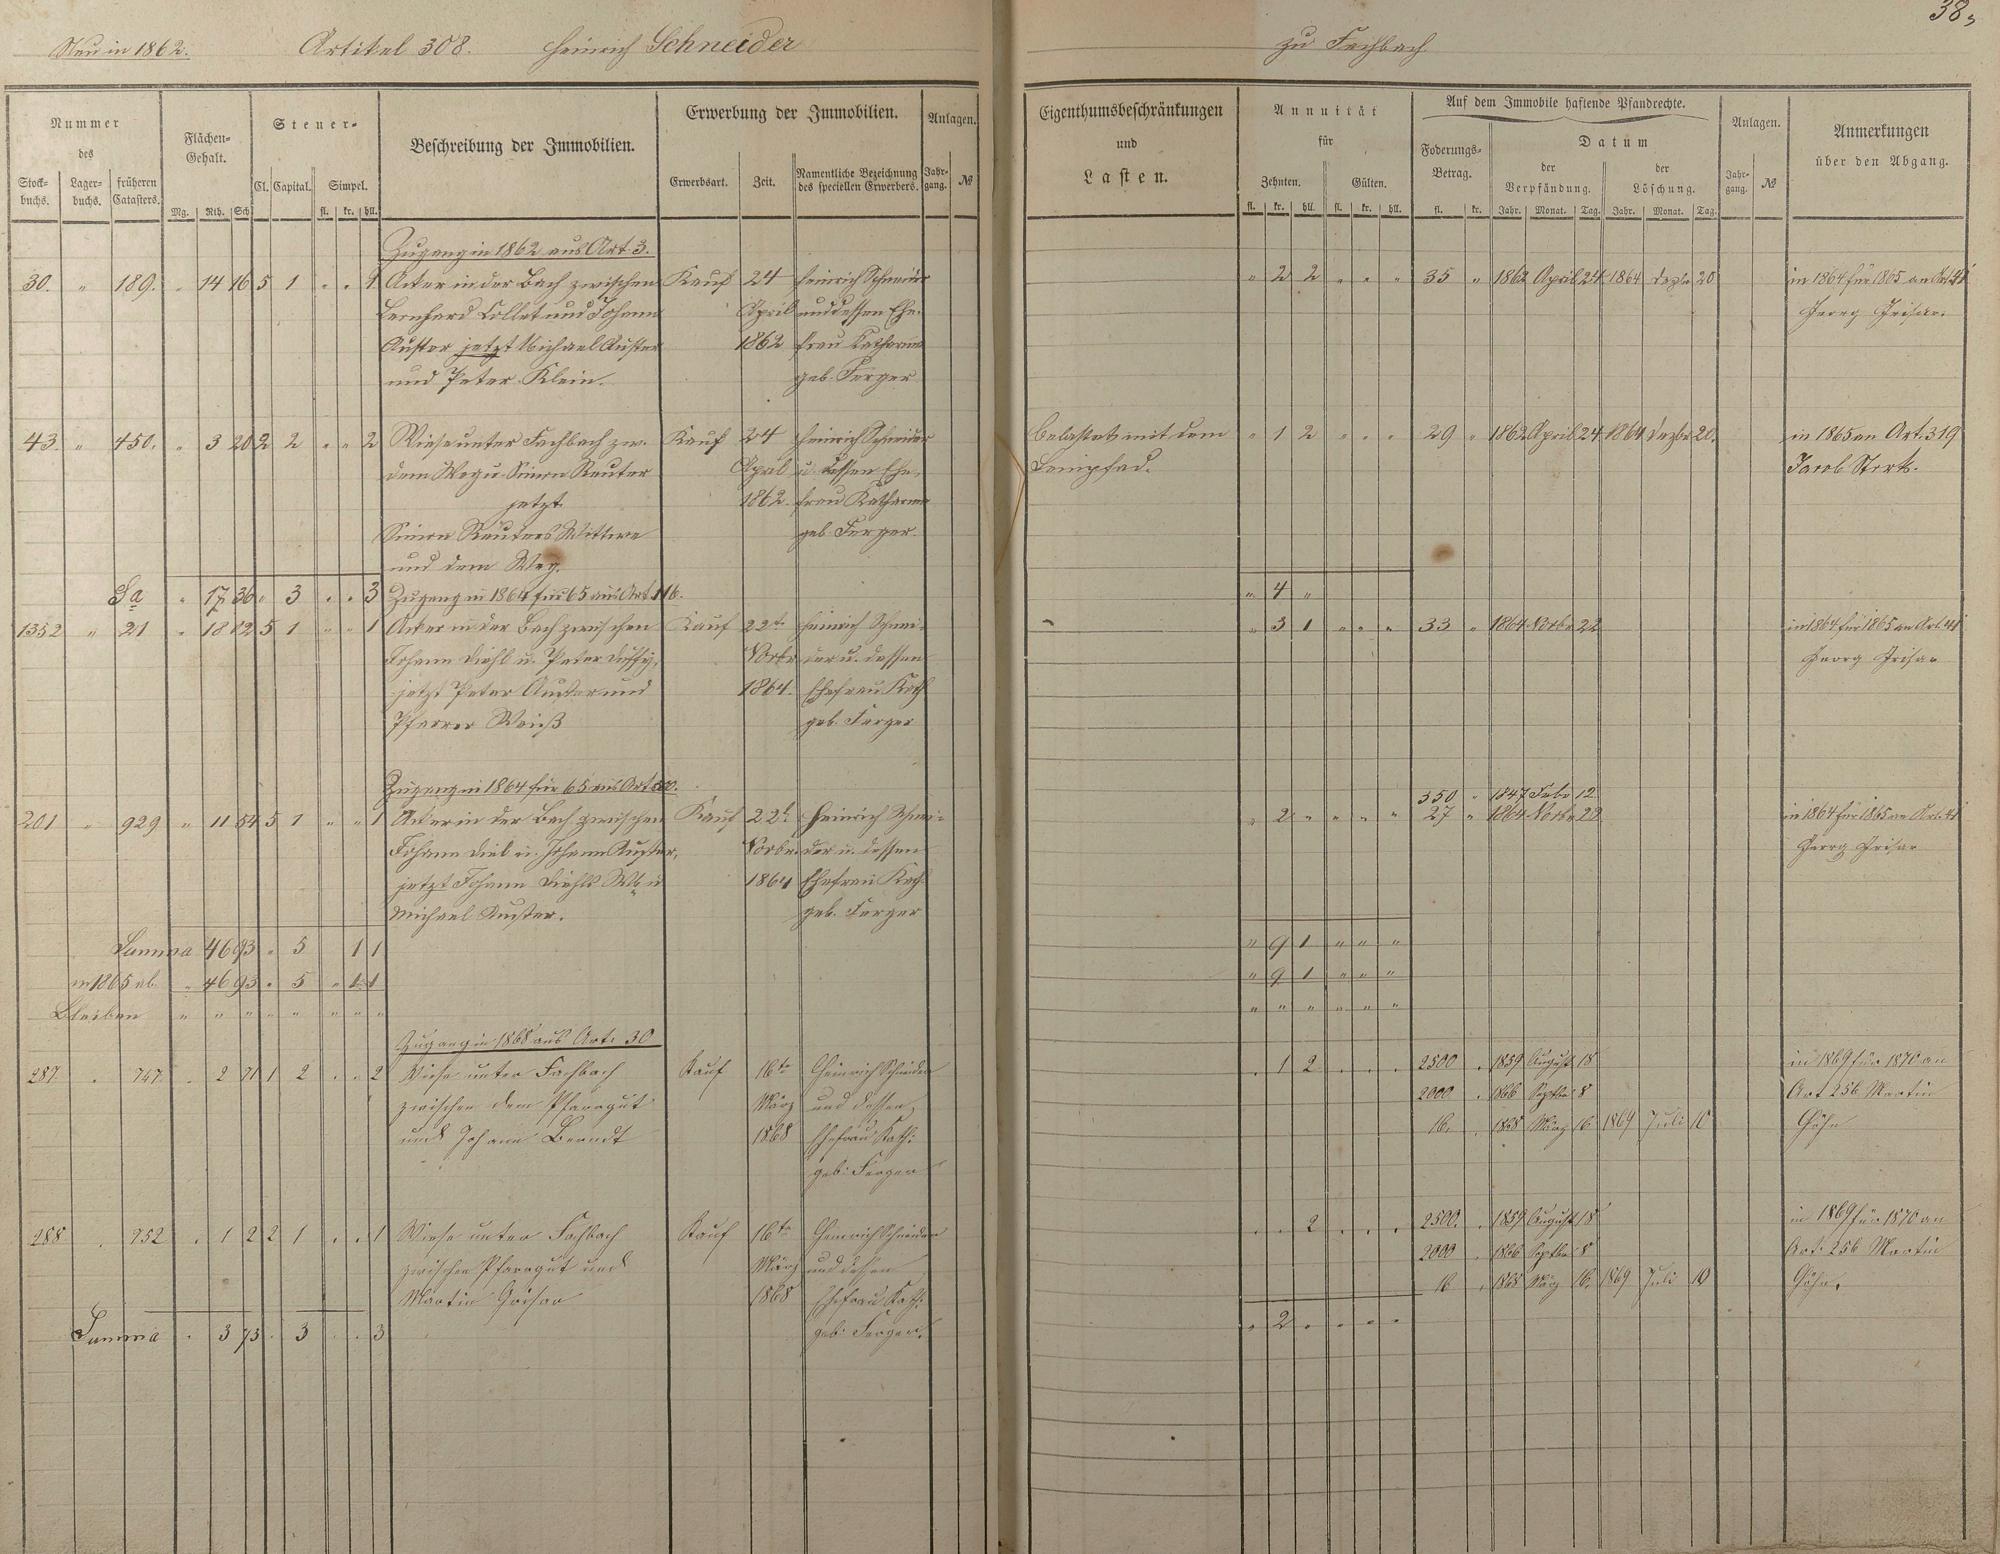 38
Neu in 1862. Artikel 308. Heinrich Schneider zu Fachbach
Nummer des
Stock-buchs. Lager-buchs. früheren Catasters.
Flächen-Gehalt.
Mg. Rth. Sch.
Steuer-
Cl. Capital. Simpel.
fl. kr. hll.
Beschreibung der Immobilien.
Erwerbung der Immobilien.
Erwerbsart. Zeit. Namentliche Bezeichnung des speciellen Erwerbers.
Anlagen.
Jahr-gang. №
Eigenthumsbeschränkungen
und
Lasten.
Annuität
für
Zehnten. Gülten.
fl. kr. hll. fl. kr. hll.
Auf dem Immobile haftende Pfandrechte.
Foderungs-Betrag.
fl. kr.
Datum
der Verpfändung. der Löschung.
Jahr. Monat. Tag. Jahr. Monat. Tag.
Anlagen.
Jahr-gang. №
Anmerkungen
über den Abgang.
Zugang in 1862 aus Art 3.
30. " 189. " 14 16 5 1 " " 1 Acker in der Bach zwischen Kauf 24 Heinrich Schneider " 2 2 " " " 35 " 1862 April 24 1864 Dezbr 20 in 1864 für 1865 an Art. 41
Bernhard Collet und Johann April und dessen Ehe- Georg Grisar.
Auster jetzt Michael Auster 1862 frau Katharina
und Peter Klein. geb. Ferger
43. " 450. " 3 20 2 2 " " 2 Wiese unter Fachbach zw. Kauf 24 Heinrich Schneider belastet mit dem " 1 2 " " " 29 " 1862 April 24 1864 Dezbr 20. in 1865 an Art. 319
dem Weg u Simon Reuter April u. dessen Ehe- Leinpfad. Jacob Stork.
jetzt 1862. frau Katharina
Simon Reuters Wittwe geb. Ferger.
und dem Weg.
Sa " 17 36 " 3 " " 3 Zugang in 1864 für 65 aus Art 116. " 4 "
1352 " 21 " 18 12 5 1 " " 1 Acker in der Bach zwischen Kauf 22te Heinrich Schnei- " 3 1 " " " 33 " 1864 Novbr 22 in 1864 für 1865 an Art. 41
Johann Diehl u. Peter Novbr der u. dessen Georg Grisar
jetzt Peter Auster und 1864. Ehefrau Kath
Pfarrer Weiß geb. Ferger
Zugang in 1864 für 65 aus Art
350 " 1847 Febr 12
201 " 929 " 11 54 5 1 " " 1 Acker in der Bach zwischen Kauf 22t Heinrich Schnei- " 2 " " " " 27 " 1864 Novbr 22 in 1864 für 1865 an Art. 41
Johann Diel u. Johann Auster, Novbr. der u. dessen Georg Grisar
jetzt Johann Diehls Wb u 1864 Ehefrau Kath
Michael Auster. geb. Ferger
Summa 46 93 " 5 1 1 " 9 1 " " "
in 1865 ab. " 46 93 " 5 " 1 1 " 9 1 " " "
Bleiben " " " " " " " " " " " " " "
Zugang in 1868 aus Art. 30
287. " 747. " 2 71 1 2 " " 2 Wiese unter Fachbach Kauf 16te Heinrich Schneider " 1 2 " " " 2500 " 1859 August 18 in 1869 für 1870 an
zwischen dem Pfarrgut März und dessen 2000 " 1866 Septbr 8 Art 256 Martin
und Johann Berndt 1868 Ehefrau Kath: 16. " 1868 März 16 1869 Juli 10
geb: Ferger
288 " 752 " 1 2 2 1 " " 1 Wiese unter Fachbach Kauf 16te Heinrich Schneider " " 2 " " " 2500. " 1859 August 18 in 1869 für 1870 an
zwischen Pfarrgut und März und dessen 2000 " 1866 Septbr 8 Art: 256 Martin
Martin Grisar 1868 Ehefrau Kath: 16 " 1868 März 16. 1869 Juli 10
Summa " 3 73 " 3 " " 3 geb: Ferger. " 2 " " " "